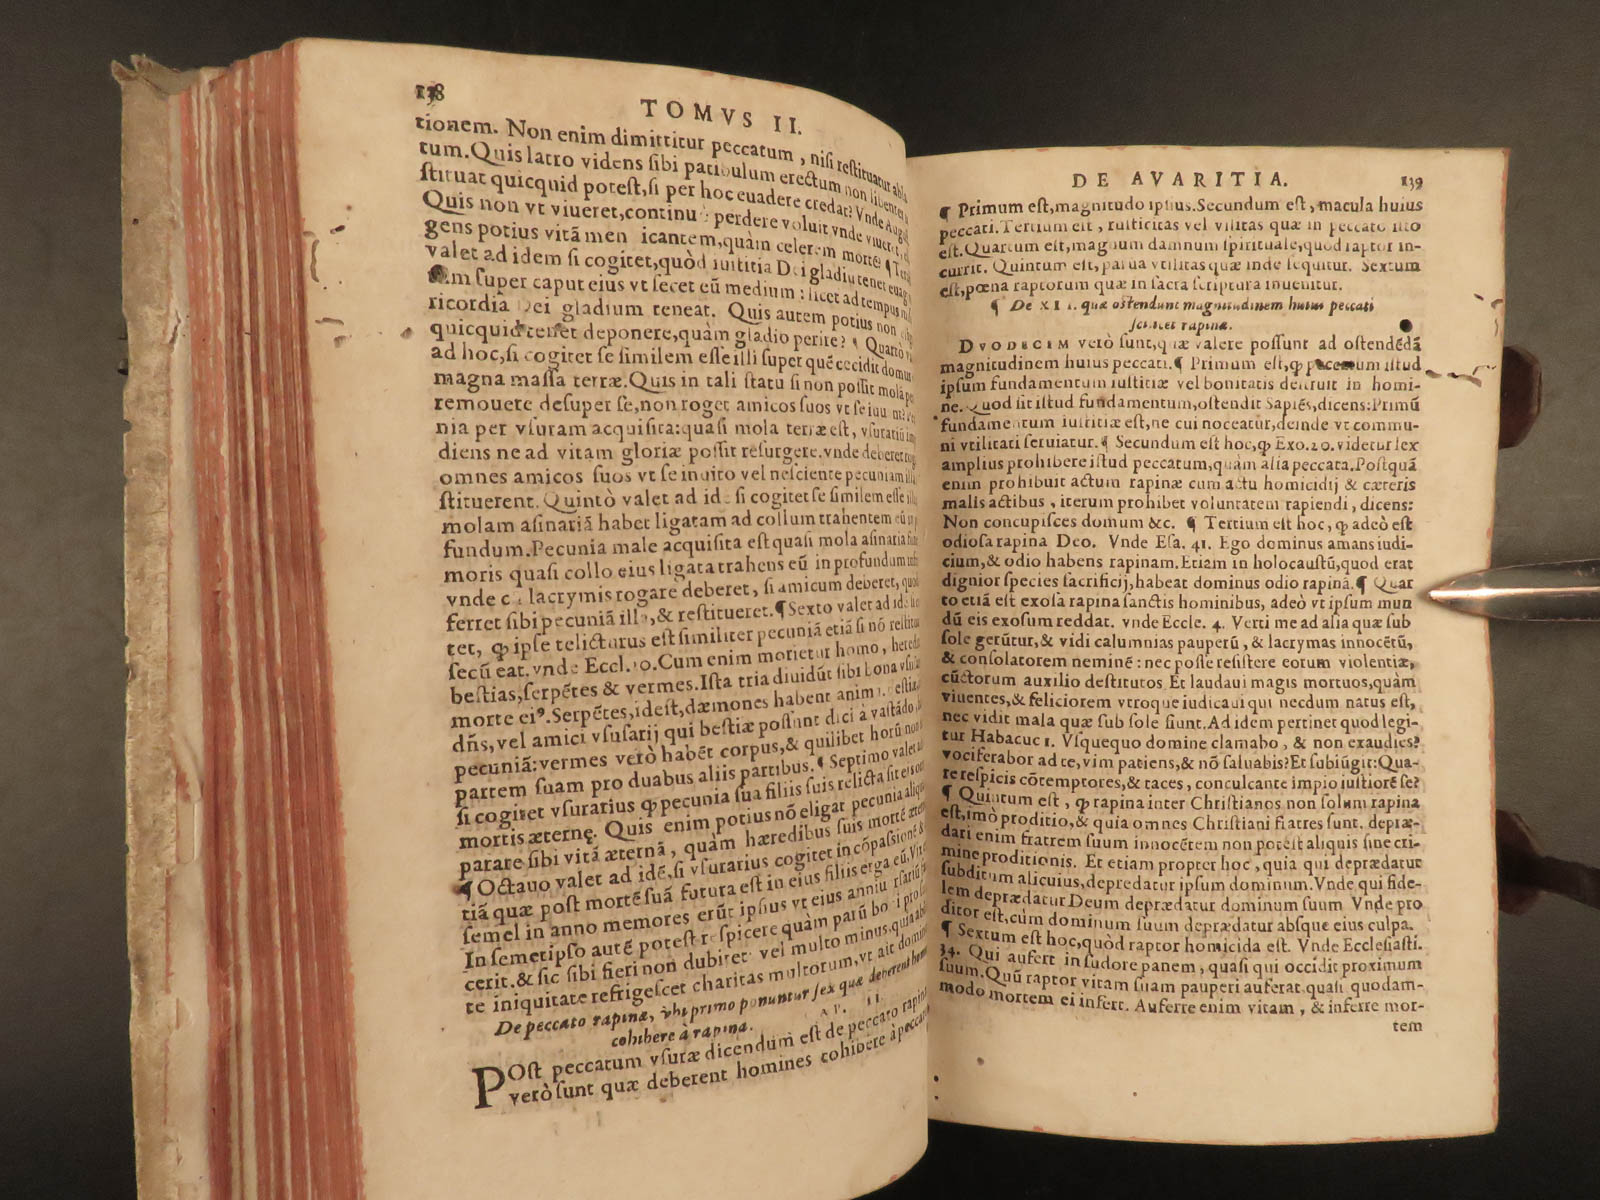 138
TOMVS II.
tionem. Non enim dimittitur peccatum, nisi restituatur abla
tum. Quis latro videns sibi patibulum erectum non libenter
stituat quicquid potest, si per hoc euadere credat? Vnde Aug
Quis non vt viueret, continuò perdere voluit vnde viueret,
gens potius vitā men icantem, quàm celerem mortē? ¶ Terti
valet ad idem si cogitet, quòd iustitia Dei gladiū tenet euagi
super caput eius vt secet eū medium: licet ad tempus mi
ricordia Dei gladium teneat. Quis autem potius non
quicquid tenet deponere, quàm gladio perire? ¶ Quartò v
ad hoc, si cogitet se similem esse illi super quē cecidit domus
magna massa terræ. Quis in tali statu si non possit molā
remouere desuper se, non roget amicos suos vt se iuu
nia per vsuram acquisita: quasi mola terræ est, vsurariū im
diens ne ad vitam gloriæ possit resurgere. vnde deberet rog
omnes amicos suos vt se inuito vel nesciente pecuniam ill
stituerent. Quintò valet ad idē si cogitet se similem esse illi
molam asinariā habet ligatam ad collum trahentem eū
fundum. Pecunia male acquisita est quasi mola asinaria
moris quasi collo eius ligata trahens eū in profundum
vnde c lacrymis rogare deberet, si amicum deberet, quod
ferret sibi pecuniā illā, & restitueret. ¶ Sexto valet ad idē
tet, ꝙ ipse relicturus est similiter pecuniā etiā si nō restitu
secū eat. vnde Eccl.10. Cum enim morietur homo, heredi
bestias, serpētes & vermes. Ista tria diuidūt sibi bona vsu
morte eiꝰ. Serpētes, idest, dæmones habent animā. bestiæ
dn̄s, vel amici vsurarij qui bestiæ possunt dici à vastādo
pecuniā: vermes verò habēt corpus, & quilibet horū non
partem suam pro duabus aliis partibus. ¶ Septimo valet
si cogitet vsurarius ꝙ pecunia sua filiis suis relicta sit eis
mortis æternę. Quis enim potius nō eligat pecunia aliqua
parare sibi vitā æternā, quàm hæredibus suis mortē ætern
¶ Octauo valet ad idē, si vsurarius cogitet incōpassionē &
tiā quæ post mortē suā futura est in eius filiis erga eū, Vix
semel in anno memores erūt ipsius vt eius anniu rsariū
In semetipso autē potest respicere quàm parū boni pro
cerit. & sic sibi fieri non dubiret vel multo minus, quia ab
te iniquitate refrigescet charitas multorum, vt ait domin
De peccato rapinæ, vbi primo ponuntur sex quæ deberent hom
cohibere à rapina. II
POst peccatum vsuræ dicendum est de peccato rapinæ
verò sunt quæ deberent homines cohibere à peccat
DE AVARITIA. 139
¶ Primum est, magnitudo ipsius. Secundum est, macula huius
peccati. Tertium est, rusticitas vel vilitas quæ in peccato isto
est. Quartum est, magnum damnum spirituale, quod raptor in-
currit. Quintum est, parua vtilitas quæ inde sequitur. Sextum
est, pœna raptorum quæ in sacra scriptura inuenitur.
¶ De XII. quæ ostendunt magnitudinem huius peccati
scilicet rapinæ.
DVODECIM verò sunt, quæ valere possunt ad ostendēdā
magnitudinem huius peccati. ¶ Primum est, ꝙ peccatum istud
ipsum fundamentum iustitiæ vel bonitatis destruit in homi-
ne. Quod sit istud fundamentum, ostendit Sapiēs, dicens: Primū
fundamentum iustitiæ est, ne cui noceatur, deinde vt commu-
ni vtilitati seruiatur. ¶ Secundum est hoc, ꝙ Exo.20. videtur lex
amplius prohibere istud peccatum, quàm alia peccata. Postquā
enim prohibuit actum rapinæ cum actu homicidij & cæteris
malis actibus, iterum prohibet voluntatem rapiendi, dicens:
Non concupisces domum &c. ¶ Tertium est hoc, ꝙ adeò est
odiosa rapina Deo. Vnde Esa. 41. Ego dominus amans iudi-
cium, & odio habens rapinam. Etiam in holocaustū, quod erat
dignior species sacrificij, habeat dominus odio rapinā. ¶ Quar
to etiā est exosa rapina sanctis hominibus, adeò vt ipsum mun
dū eis exosum reddat. vnde Eccle. 4. Verti me ad alia quæ sub
sole gerūtur, & vidi calumnias pauperū, & lacrymas innocētū,
& consolatorem neminē: nec posse resistere eorum violentiæ,
cūctorum auxilio destitutos. Et laudaui magis mortuos, quàm
viuentes, & feliciorem vtroque iudicaui qui necdum natus est,
nec vidit mala quæ sub sole fiunt. Ad idem pertinet quod legi-
tur Habacuc 1. Vsquequo domine clamabo, & non exaudies?
vociferabor ad te, vim patiens, & nō saluabis? Et subiūgit: Qua-
re respicis cōtemptores, & taces, conculcante impio iustiorē se?
¶ Quintum est, ꝙ rapina inter Christianos non solum rapina
est, imò proditio, & quia omnes Christiani fratres sunt. depræ-
dari enim fratrem suum innocētem non potest aliquis sine cri-
mine proditionis. Et etiam propter hoc, quia qui deprædatur
subditum alicuius, depredatur ipsum dominum. Vnde qui fide-
lem deprædatur Deum deprædatur dominum suum Vnde pro
ditor est, cùm dominum suum deprædatur absque eius culpa.
¶ Sextum est hoc, quòd raptor homicida est. Vnde Ecclesiasti.
34. Qui aufert in sudore panem, quasi qui occidit proximum
suum. Quū raptor vitam suam pauperi auferat quasi quodam-
modo mortem ei infert. Auferre enim vitam, & inferre mor-
tem